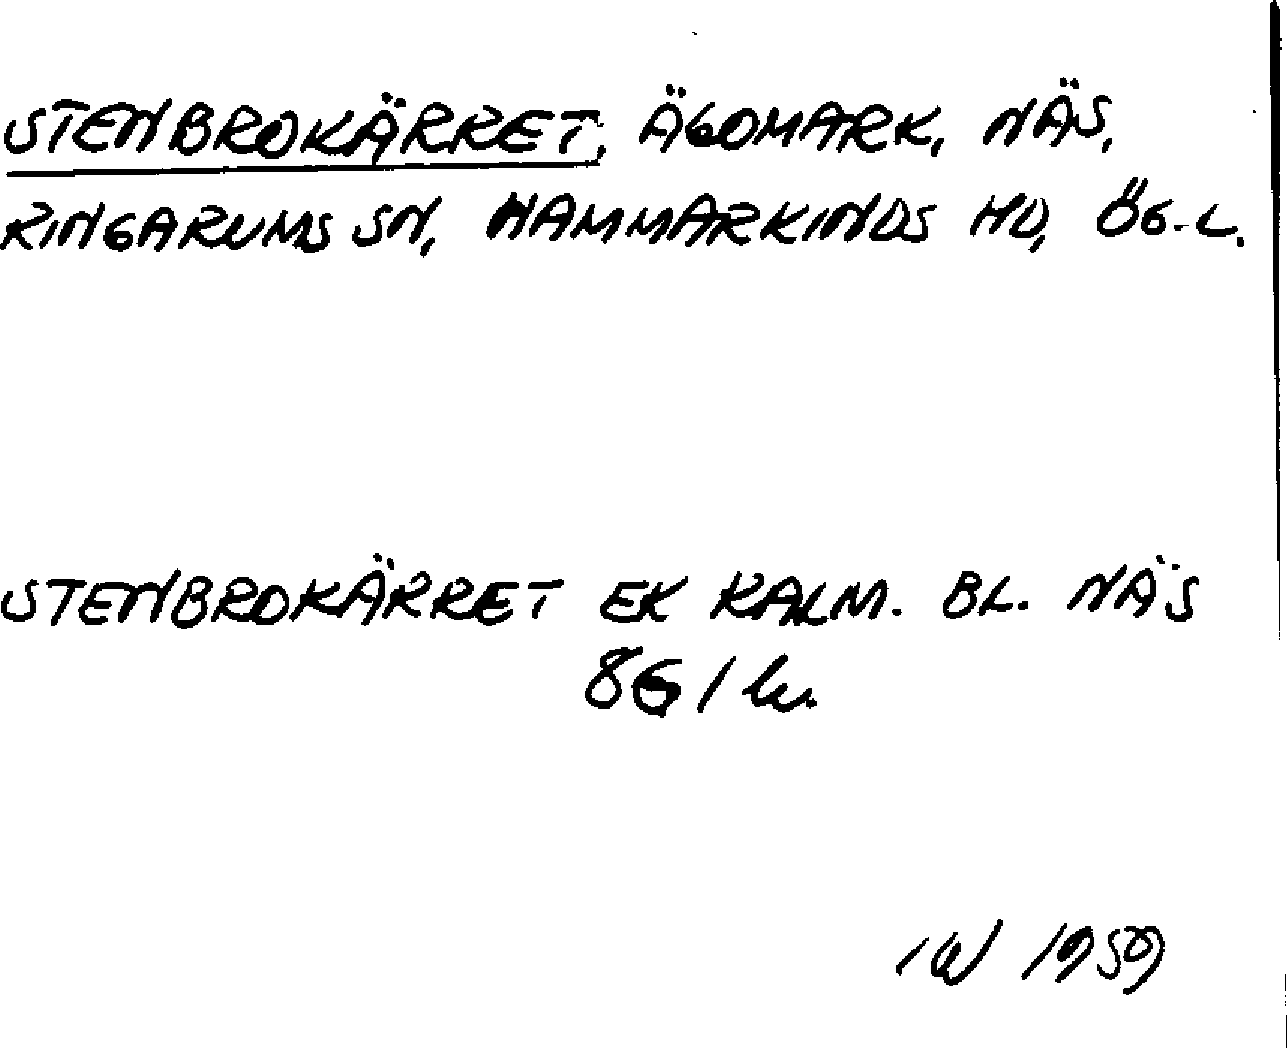 STENBROKÄRRET, ÄGOMARK, NÄS,
RINGARUMS SN, HAMMARKINDS HD, ÖG.L.
STENBROKÄRRET EK KALM. BL. NÄS
86 1
1959